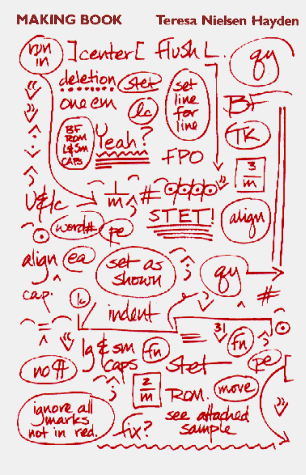 MAKING BOOK Teresa Nielsen Hayden
run in ]center[ flush L. qy
deletion stet set line for line
one em lc BF
BF ROM L&SM CAPS Yeah? TK
FPO 3/m
u&lc 1/m #
STET! align
word# pe
align ea set as shown qy
cap. #
lc indent
31
lg & sm caps fn fn
no ¶ stet pe
2/m ROM. move
ignore all marks not in red. see attached sample
fix?